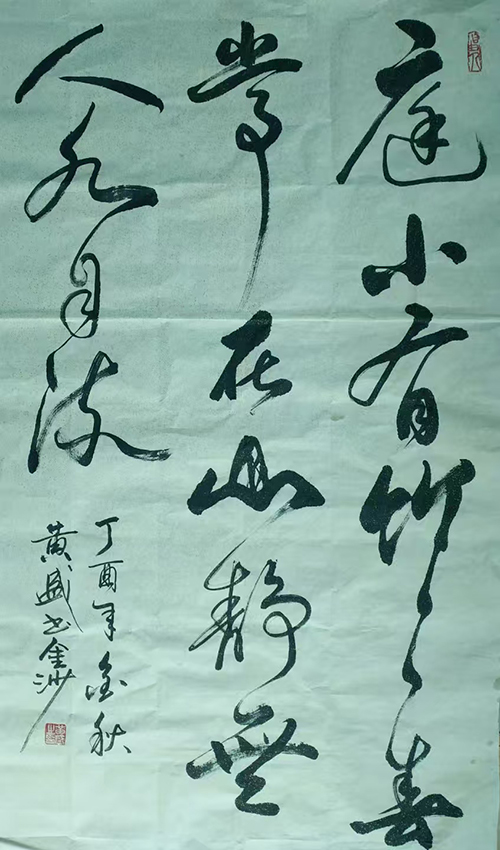 庭小有竹春
常在山静無
人水自流
丁酉年金秋
黄盛书金沙